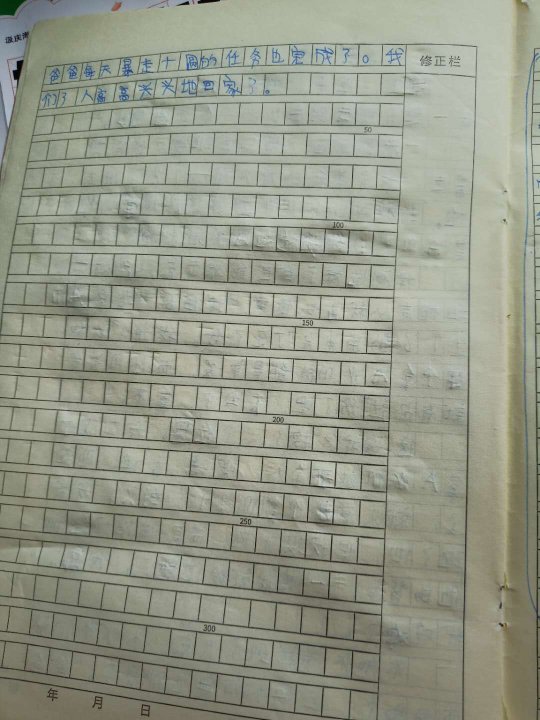 爸爸每天暴走十圈的任务也完成了。我
们了人高高兴兴地回家了。
修正栏
50
100
150
200
250
300
年 月 日